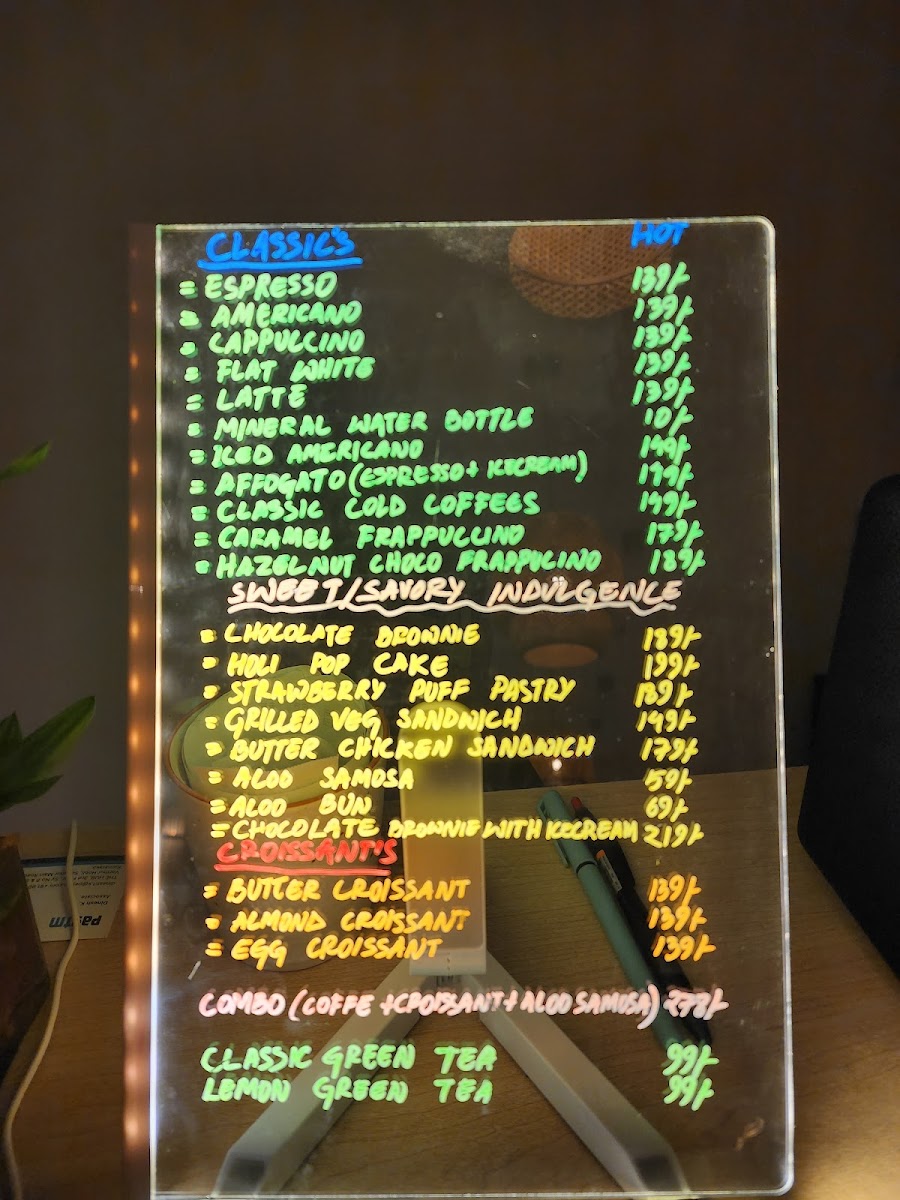 CLASSIC'S HOT
= ESPRESSO 139/-
= AMERICANO 139/-
= CAPPUCCINO 139/-
= FLAT WHITE 139/-
= LATTE 139/-
= MINERAL WATER BOTTLE 10/-
= ICED AMERICANO 149/-
= AFFOGATO (ESPRESSO + ICECREAM) 149/-
= CLASSIC COLD COFFEES 149/-
= CARAMEL FRAPPUCCINO 179/-
= HAZELNUT CHOCO FRAPPUCINO 189/-
SWEET/SAVORY INDULGENCE
= CHOCOLATE BROWNIE 189/-
= HOLI POP CAKE 199/-
= STRAWBERRY PUFF PASTRY 139/-
= GRILLED VEG SANDWICH 149/-
= BUTTER CHICKEN SANDWICH 179/-
= ALOO SAMOSA 59/-
= ALOO BUN 69/-
= CHOCOLATE BROWNIE WITH ICECREAM 219/-
CROISSANT'S
= BUTTER CROISSANT 139/-
= ALMOND CROISSANT 139/-
= EGG CROISSANT 139/-
COMBO (COFFE + CROISSANT + ALOO SAMOSA)
CLASSIC GREEN TEA 99/-
LEMON GREEN TEA 99/-
paytm